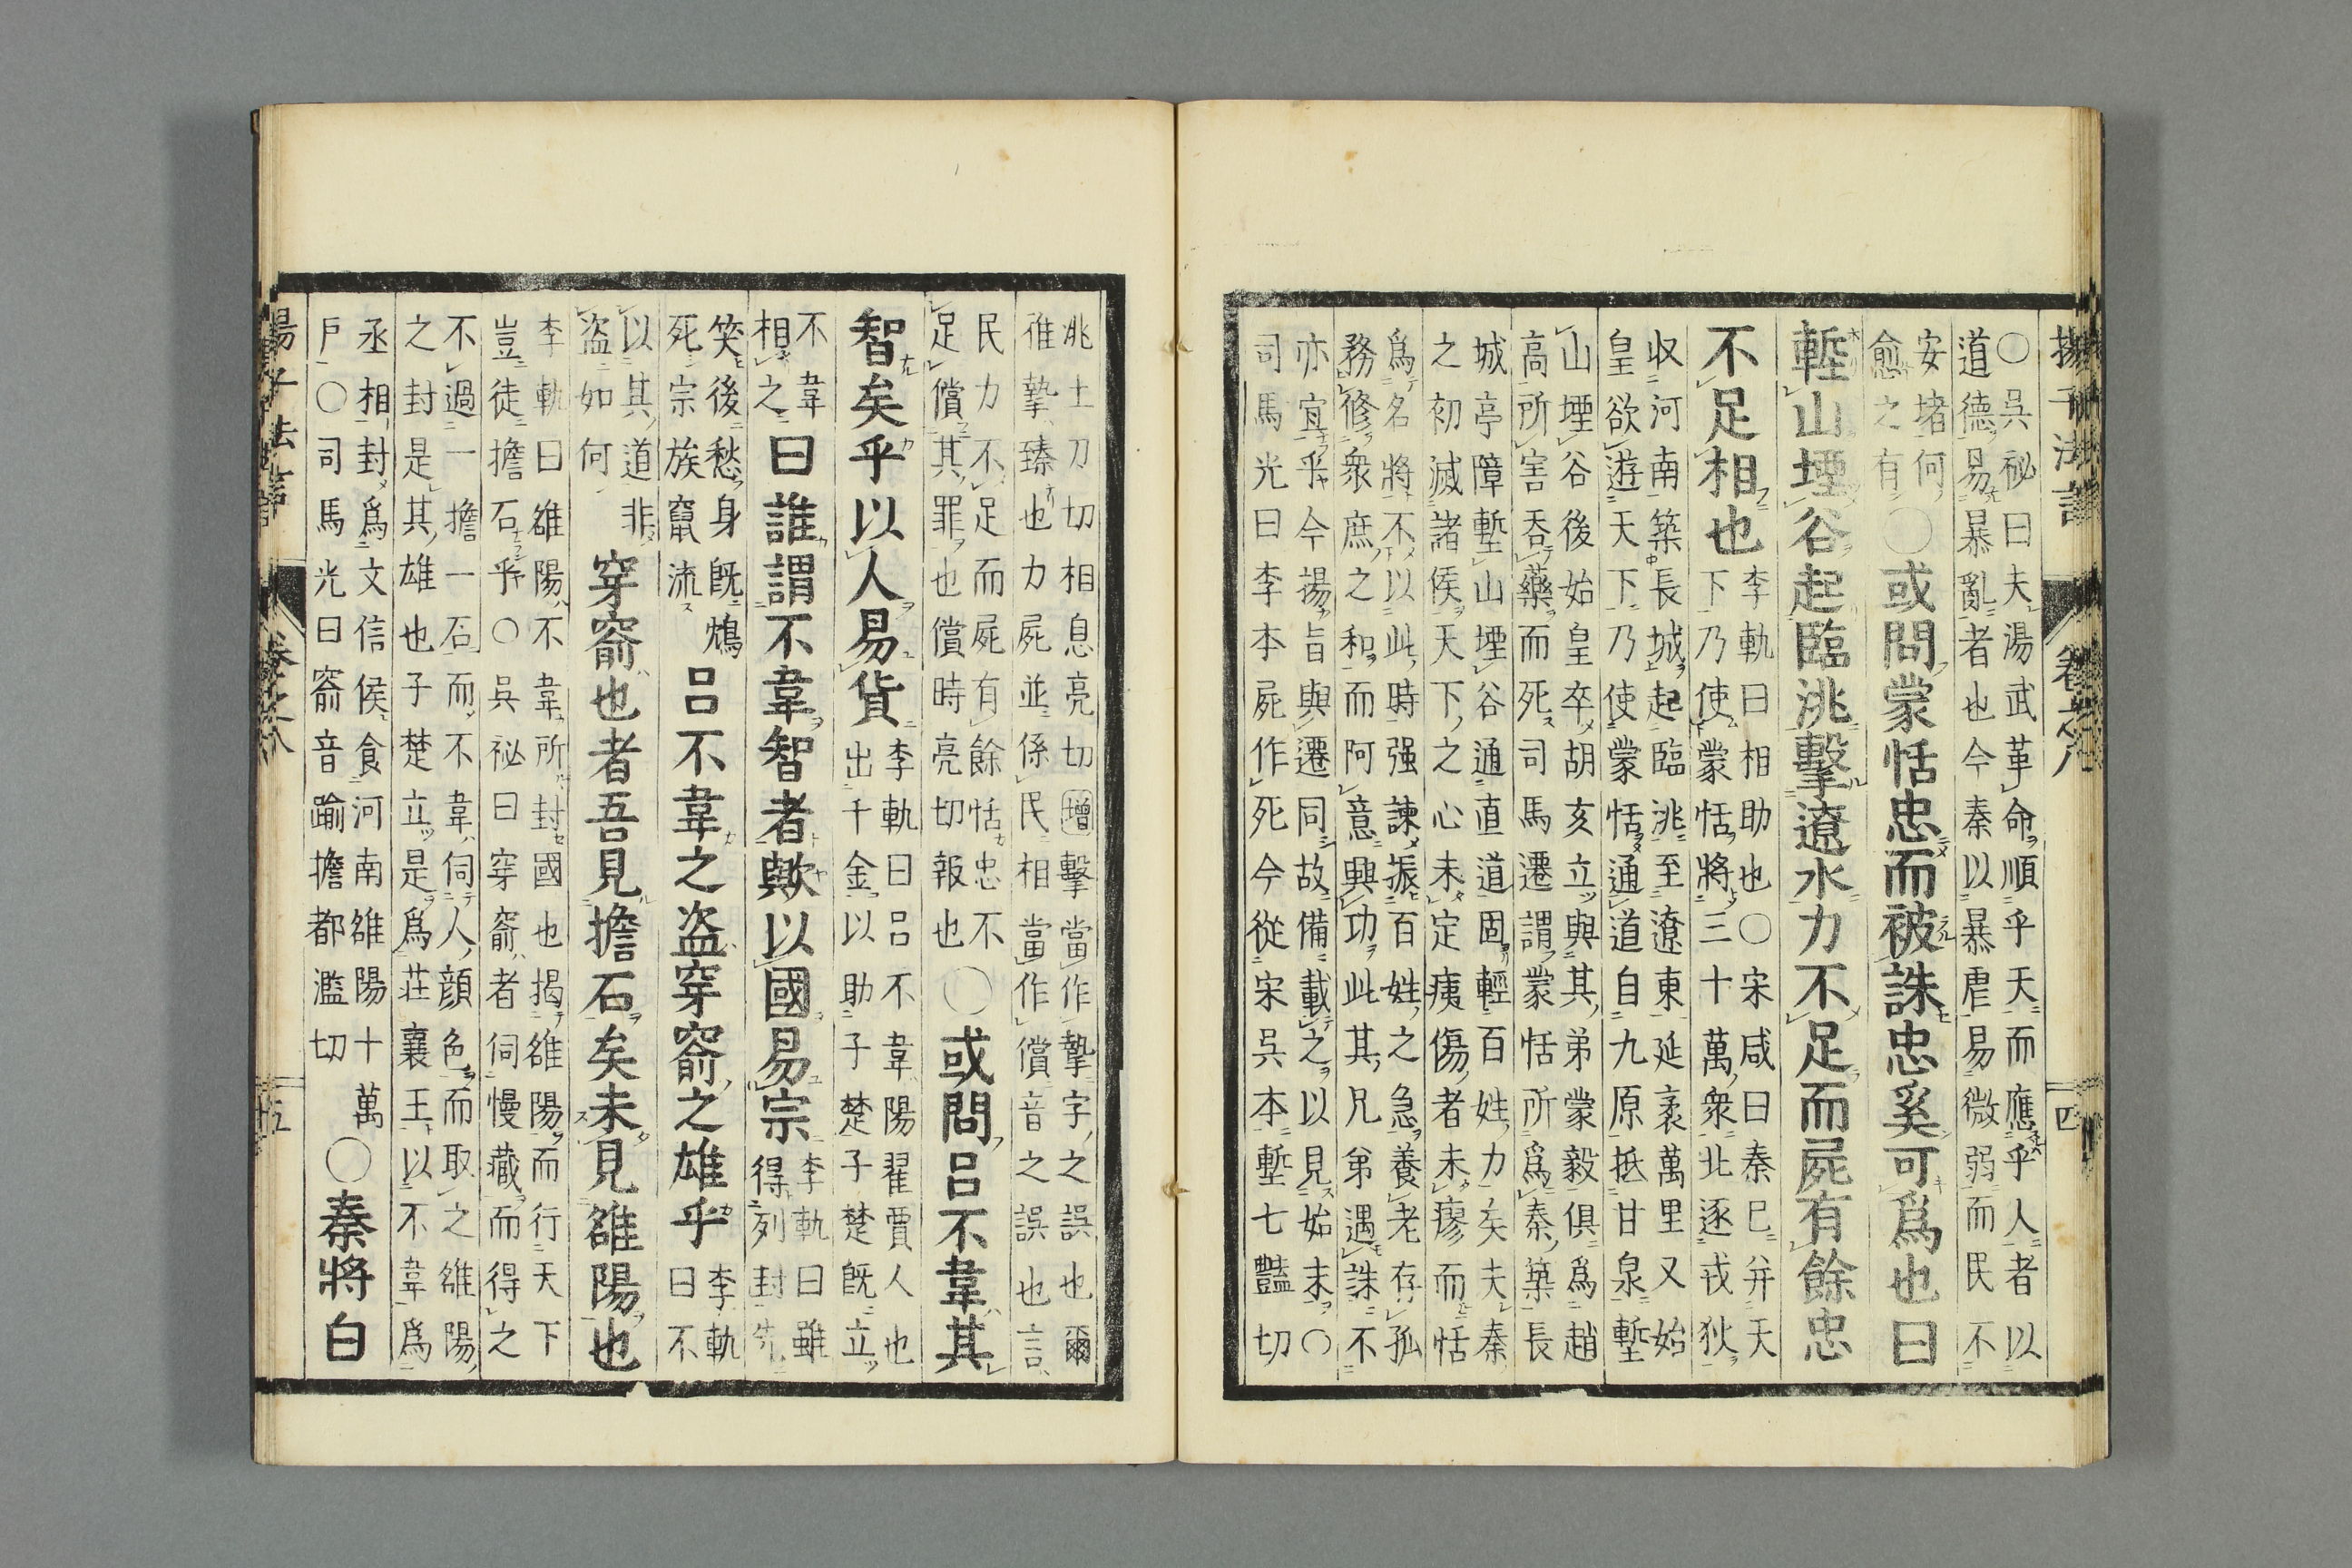 揚子法言 卷之八 四
○吳祕曰夫湯武革命順乎天而應乎人者以
道德易暴亂者也今秦以暴虐易微弱而民不
安堵何
愈之有
○或問蒙恬忠而被誅忠奚可爲也曰
塹山堙谷起臨洮擊遼水力不足而屍有餘忠
不足相也
李軌曰相助也○宋咸曰秦已并天
下乃使蒙恬將三十萬衆北逐戎狄
収河南築長城起臨洮至遼東延袤萬里又始
皇欲遊天下乃使蒙恬通道自九原抵甘泉塹
山堙谷後始皇卒胡亥立與其弟蒙毅俱爲趙
高所害吞藥而死司馬遷謂蒙恬所爲秦築長
城亭障塹山堙谷通直道固輕百姓力矣夫秦
之初滅諸侯天下之心未定痍傷者未瘳而恬
爲名將不以此時强諫振百姓之急養老存孤
務修衆庶之和而阿意興功此其兄弟遇誅不
亦宜乎今揚旨與遷同故備載之以見始末○
司馬光曰李本屍作死今從宋吳本塹七豔切
洮土刀切相息亮切增擊當作摯字之誤也爾
雅摯臻也力屍並係民相當作償音之誤也言
民力不足而屍有餘恬忠不
足償其罪也償時亮切報也
○或問呂不韋其
智矣乎以人易貨
李軌曰呂不韋陽翟賈人也
出千金以助子楚子楚既立
不韋
相之
曰誰謂不韋智者歟以國易宗
李軌曰雖
得列封先
笑後愁身既鴆
死宗族竄流
呂不韋之盜穿窬之雄乎
李軌
曰不
以其道非
盜如何
穿窬也者吾見擔石矣未見雒陽也
李軌曰雒陽不韋所封國也揭雒陽而行天下
豈徒擔石乎○吳祕曰穿窬者伺慢藏而得之
不過一擔一石而不韋伺人顏色而取之雒陽
之封是其雄也子楚立是爲莊襄王以不韋爲
丞相封爲文信侯食河南雒陽十萬
戶○司馬光曰窬音踰擔都濫切
○秦將白
揚子法言 卷之八 五